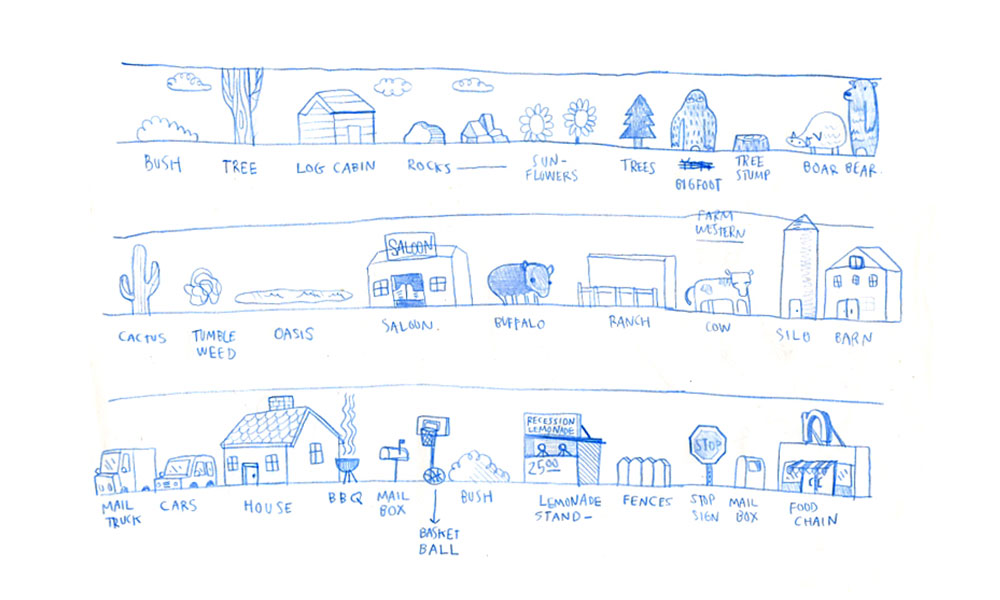 BUSH
TREE
LOG CABIN
ROCKS
SUN-
FLOWERS
TREES
BIGFOOT
TREE
STUMP
BOAR
BEAR.
FARM
WESTERN
SALOON
CACTUS
TUMBLE
WEED
OASIS
SALOON.
BUFFALO
RANCH
COW
SILO
BARN
RECESSION
LEMONADE
25.00
STOP
MAIL
TRUCK
CARS
HOUSE
BBQ
MAIL
BOX
BASKET
BALL
BUSH
LEMONADE
STAND-
FENCES
STOP
SIGN
MAIL
BOX
FOOD
CHAIN